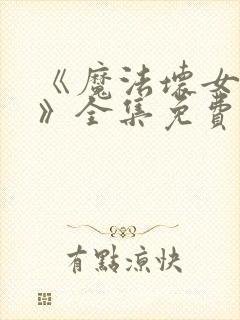 《魔法壞女
》全集免費
有點涼快